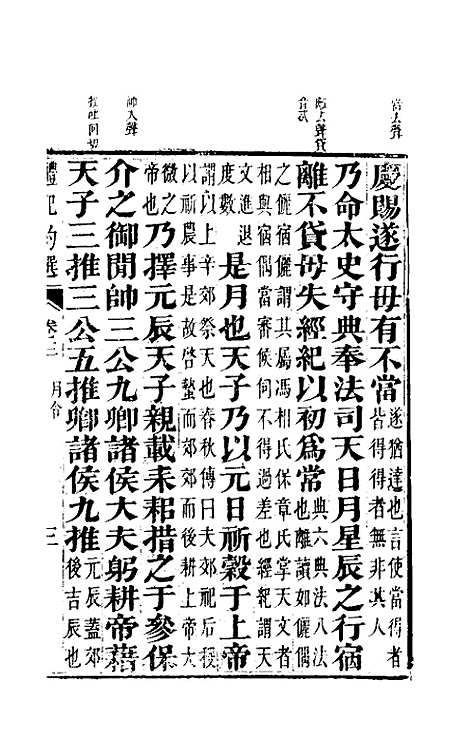 當去聲
上聲貸
音忒
帥入聲
推吐回切
慶賜遂行毋有不當遂猶達也言使當得者
皆得得者無非其人
乃命太史守典奉法司天日月星辰之行宿
離不貸毋失經紀以初爲常典六典法八法
也離讀如儷偶
之儷宿儷謂其屬馮相氏保章氏掌天文者
相與宿偶當審候伺不得過差也經紀謂天
文進退
度數 是月也天子乃以元日祈穀于上帝
謂以上辛郊祭天也春秋傳曰夫郊祀后稷
以祈農事是故啓蟄而郊郊而後耕上帝太
微之
帝也乃擇元辰天子親載耒耜措之于參保
介之御閒帥三公九卿諸侯大夫躬耕帝藉
天子三推三公五推卿諸侯九推元辰蓋郊
後吉辰也
禮記約選 卷三 月令 三